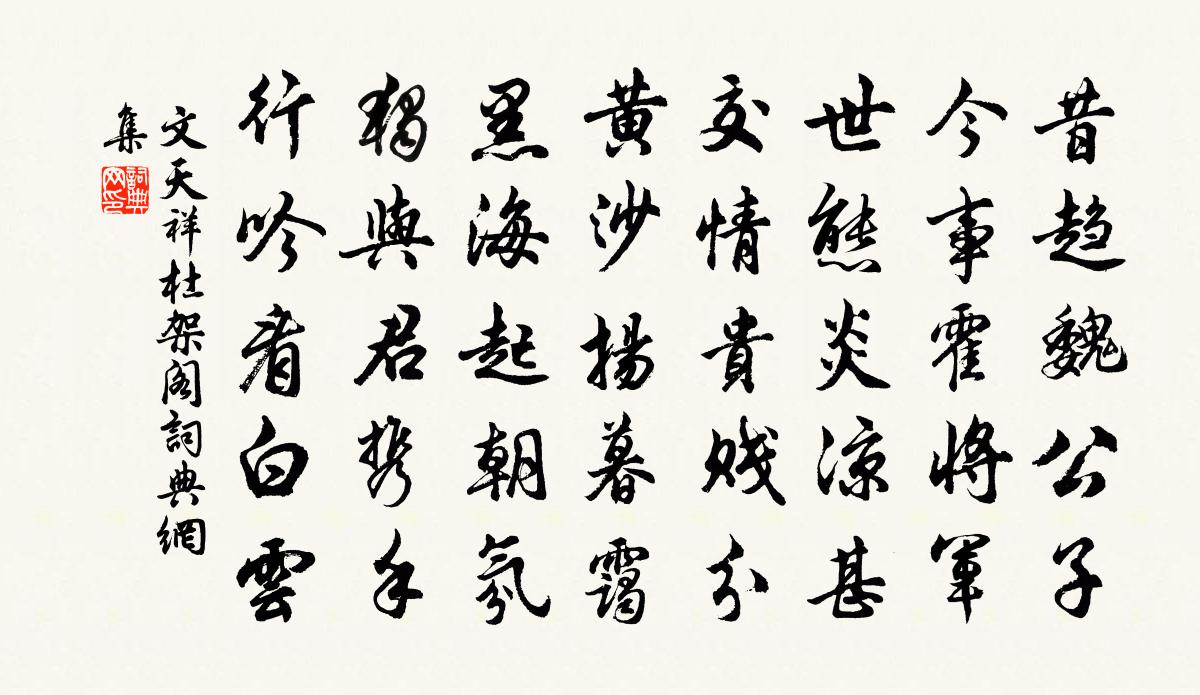 昔趙魏公子
今事霍將軍
世態炎涼甚
交情貴賤分
黃沙揚暮靄
黑海起朝氛
獨與君攜手
行吟看白雲
文天祥杜架閣詞典網
集
詞典
网印